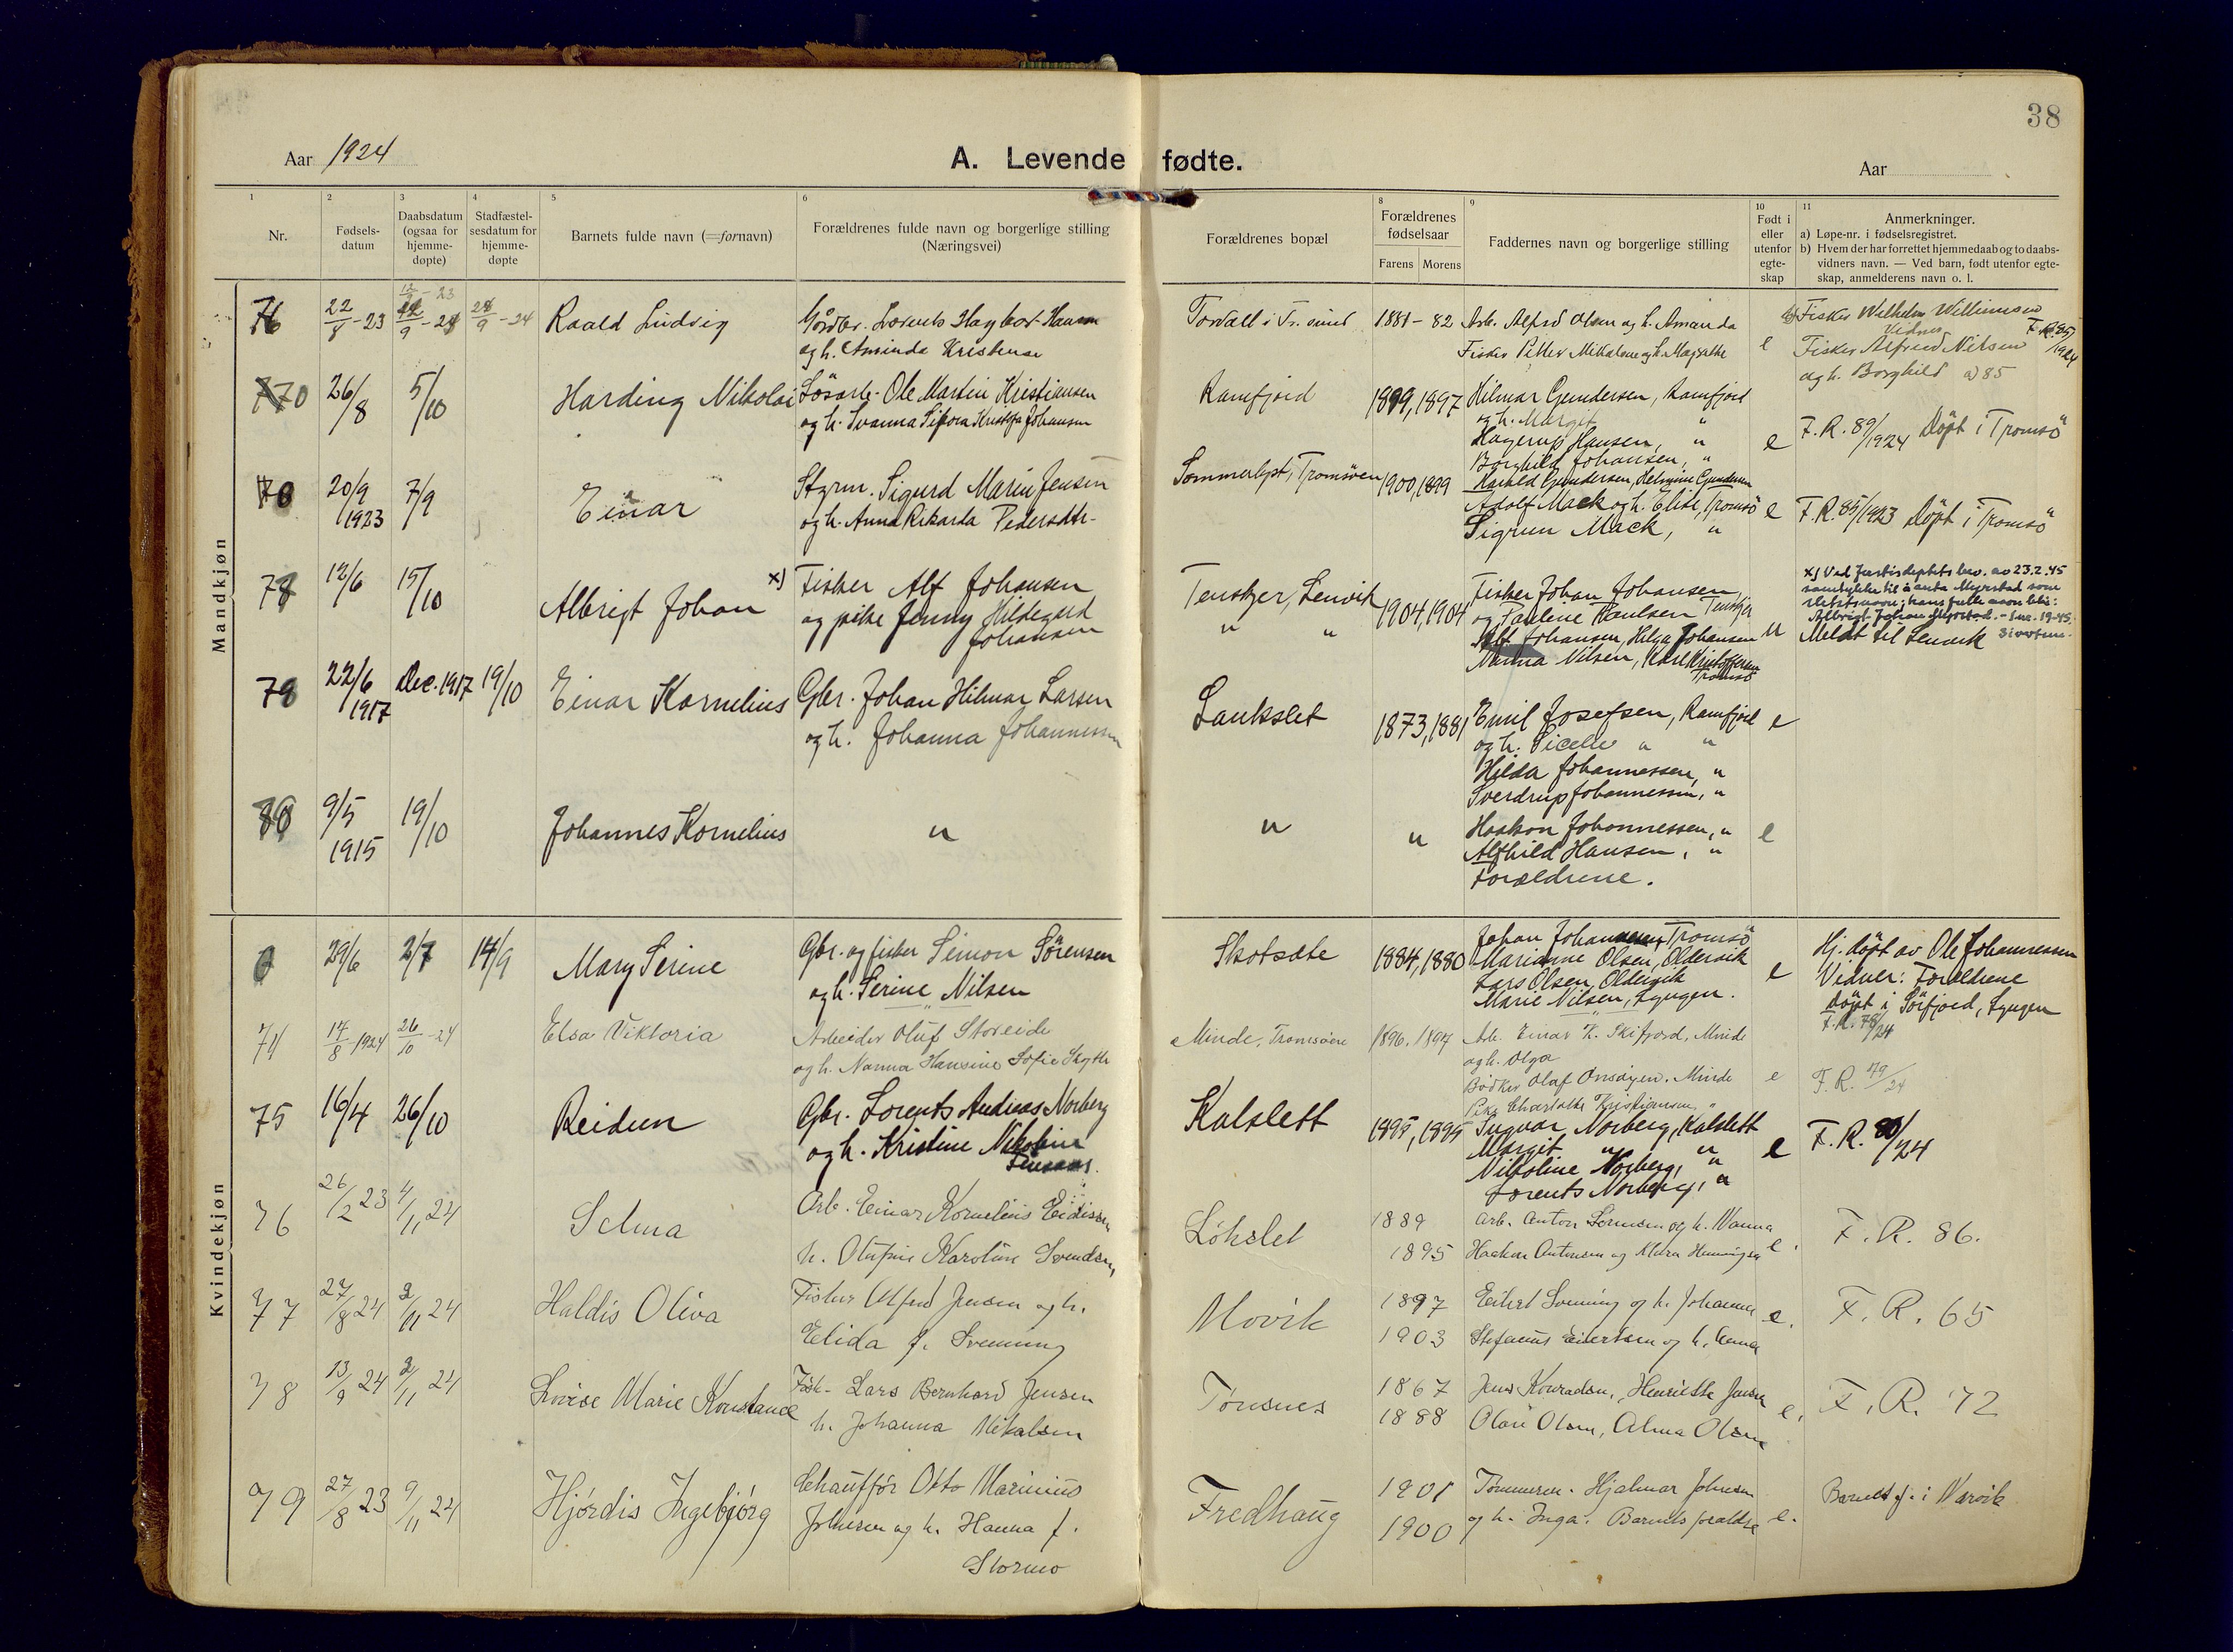 38
Aar 1924
A. Levende fødte.
Aar
1
Nr.
2
Fødsels-
datum
3
Daabsdatum
(ogsaa for
hjemme-
døpte)
4
Stadfæstel-
sesdatum for
hjemme-
døpte
5
Barnets fulde navn (=fornavn)
6
Forældrenes fulde navn og borgerlige stilling
(Næringsvei)
Forældrenes bopæl
8
Forældrenes
fødselsaar
Farens Morens
9
Faddernes navn og borgerlige stilling
10
Født i
eller
utenfor
egte-
skap
11
Anmerkninger.
a) Løpe-nr. i fødselsregistret.
b) Hvem der har forrettet hjemmedaab og to daabs-
vidners navn. — Ved barn, født utenfor egte-
skap, anmelderens navn o. l.
Mandkjøn
76 22/8-23 Raald Ludvig
og h. Aminda
1881-82 Arb. Alfred Olsen og h. Amanda
Fisker
e
Fisker Wilhelm
Vidner
Fisker Alfred Nilsen
og h. Borghild a) 85
F.R. 85/1924
26/8 5/10 Harding Nikolai
Ole Martin Kristiansen
og h. Johansen
Ramfjord
1899, 1897
Hilmar Gundersen, Ramfjord
og h. Margit "
Hagerup Hansen, "
Borghild Johansen, "
e
F.R. 89/1924 Döpt i Tromsö
20/9 1923 7/9 Einar
Styrm. Sigurd Marin Jensen
og h. Anna Rikarda Pedersdtr.
Tromsöen
1900, 1899
Gundersen, Helmine Gundersen
Adolf Mack og h. Elise, Tromsö
Sigrun Mack, "
e
F.R. 85/1923 Döpt i Tromsö
78 12/6 15/10 Albrigt Johan x)
Fisker Alf Johansen
og pike Jenny Hildegard
Johansen
Tenskjer, Lenvik
" "
1904, 1904
Fisker Johan Johansen,
og Pauline Paulsen Tenskjer
Alf Johansen, Helga Johansen
Nanna Nilsen, Karl Kristoffersen
Tromsö
u
x) Ved Justisdeptets bev. av 23.2.45
samtykke til å anta Myrstad som
slektsnavn; hans fulle navn blir:
Albrigt Johan Myrstad.
Meldt til Lenvik
22/6 1917 Dec. 1917 19/10 Einar Kornelius
Gbr. Johan Hilmar Larsen
og h. Johanna Johannessen
Laukslet
1873, 1881
Emil Josefsen, Ramfjord
og h. " "
Hilda Johannessen, "
Sverdrup Johannessen, "
e
80 9/5 1915 19/10 Johannes Kornelius
"
"
"
Haakon Johannessen, "
Alfhild Hansen, "
Forældrene.
e
Kvindekjøn
29/6 2/7 14/9 Mary Serine
Gbr. og fisker Simon Sörensen
og h. Serine Nilsen
1884, 1880
Johan Johansen, Tromsö
Marianne Olsen, Oldervik
Lars Olsen, Oldervik
Marie Nilsen, Lyngen.
e
Hj. döpt av Ole Johannessen
Vidner: Foreldrene
Döpt i Sörfjord, Lyngen
F.R. 78/24
74 14/8 1924 26/10-24 Elsa Viktoria
Arbeider Oluf Storeide
og h. Nanna Hansine Sofie
Minde, Tromsöen
1896. 1894
Arb. Einar Skifjord, Minde
og h. Olga
Bödker Olaf Onsöyen, Minde
e
F.R. 79/24
75 16/4 26/10 Reidun
Gbr. Lorents Andreas Norberg
og h. Kristine Nikoline
Kalslett
1895, 1895
Ingvar Norberg, Kalslett
Margit " "
Nikoline Norberg, "
Lorents Norberg, "
e
F.R. 80/24
76 26/2 23 4/11 24 Selma
Arb. Einar Kornelius Eidissen
h. Olufine Karoline Svendsen
Løkslet
1889
1895
Arb. Anton Sørensen og h. Nanna
Haakon Antonsen og Klara Henningsen
e.
F. R. 86.
77 27/8 24 2/11 24 Haldis Oliva
Fisker Alfred Jensen og h.
Elida f. Svenning
Movik
1897
1903
Eilert Svenning og h. Johanna
Stefanus Eilertsen og h. Anna
e.
F. R. 65
78 13/9 24 2/11 24 Lovise Marie Konstance
Fisk. Lars Bernhard Jensen
h. Johanna Mikalsen
Tønsnes
1867
1888
Jens Konradsen, Henriette Jensen
Olav Olsen, Alma Olsen
e.
F. R. 72
79 27/8 23 9/11 24 Hjørdis Ingebjørg
Chauffør Otto Marinius
Johnsen og h. Hanna f.
Stormo
Fredhaug
1901
1900
Tømmerm. Hjalmar Johnsen
og h. Inga. Barnets foraldre
e.
Barnet f. i Narvik